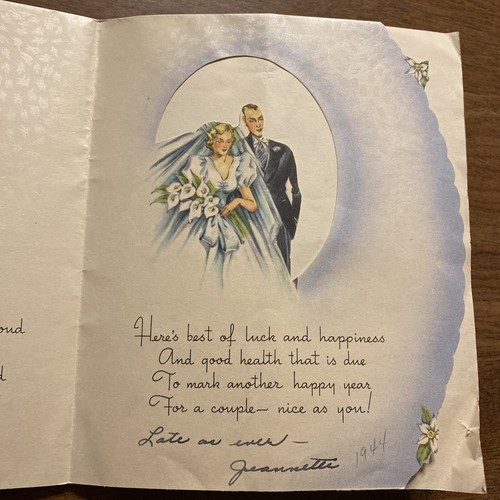 oud
d
Here's best of luck and happiness
And good health that is due
To mark another happy year
For a couple— nice as you!
Late as ever —
Jeannette
1944